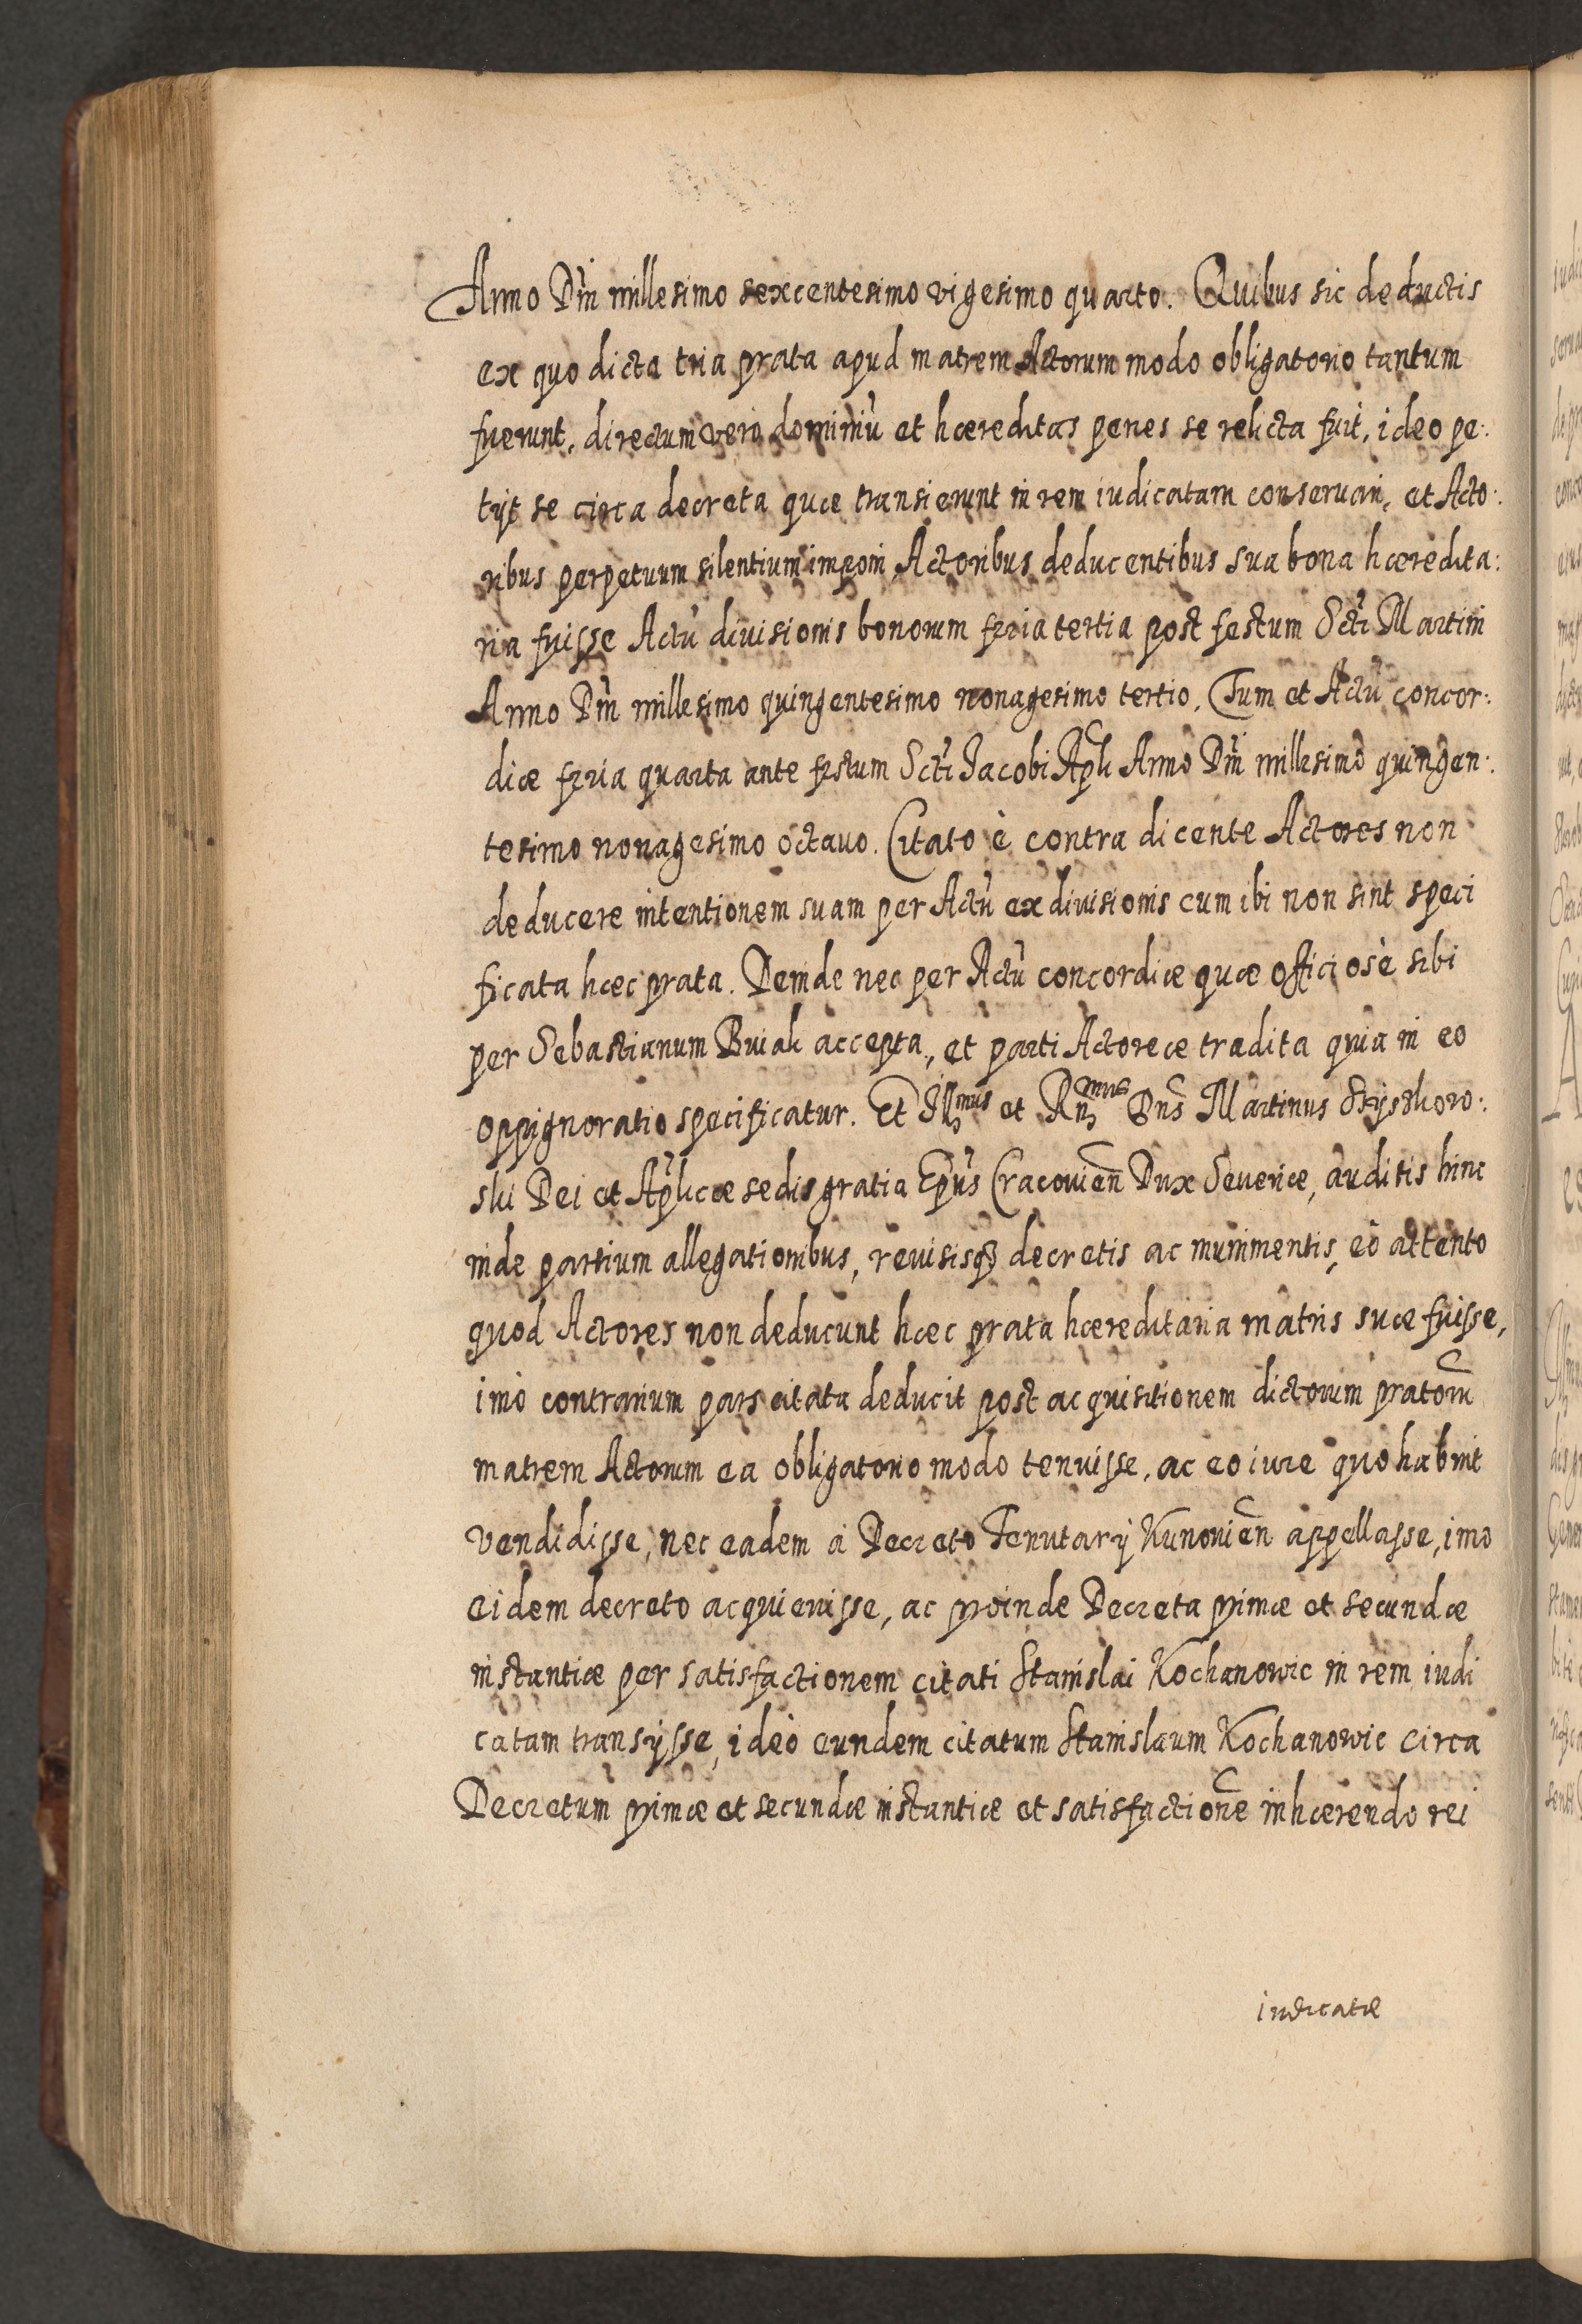 Anno Dni millesimo sexcentesimo vigesimo quarto. Quibus sic deductis
ex quo dicta tria prata apud matrem Actorum modo obligatorio tantum
fuerunt, directum vero dominiũ et hæreditas penes se relicta fuit, ideo pe:
tijt se circa decreta quæ transierunt in rem iudicatam conservari, et Acto:
ribus perpetuum silentium imponi. Actoribus deducentibus sua bona hæredita:
ria fuisse Actũ divisionis bonorum feria tertia post festum Scti Martini
Anno Dni millesimo quingentesimo nonagesimo tertio. Tum et Actũ concor:
diæ feria quarta ante festum Scti Jacobi Apli Anno Dni millesimo quingen:
tesimo nonagesimo octauo. Citato è contra dicente Actores non
deducere intentionem suam per Actũ exdivisionis cum ibi non sint speci
ficata hæc prata. Deinde nec per Actũ concordiæ quæ officiosè sibi
per Sebastianum Buiak accepta, et parti Actoreæ tradita quia in eo
oppignoratio specificatur. Et Illmus et Rndmus Dns Martinus Szyszkow:
ski Dei et Aplicæ sedis gratia Epus Cracovien Dux Severiæ, auditis hinc
inde partium allegationibus, reuisisqȝ decretis ac munimentis, eò attento
quod Actores non deducunt hæc prata hæreditaria matris suæ fuisse,
imò contrarium pars citata deducit post acquisitionem dictorum pratorũ
matrem Actorum ea obligatorio modo tenuisse, ac eo iure quo habuit
vendidisse, nec eadem à Decreto Tenutarij Kunovien appellasse, imo
eidem decreto acquieuisse, ac proinde Decreta primæ et secundæ
instantiæ per satisfactionem citati Stanislai Kochanowic in rem iudi
catam transijsse, ideò eundem citatum Stanislaum Kochanowic circa
Decretum primæ et secundæ instantiæ et satisfactionẽ inhærendo rei
iudicatæ